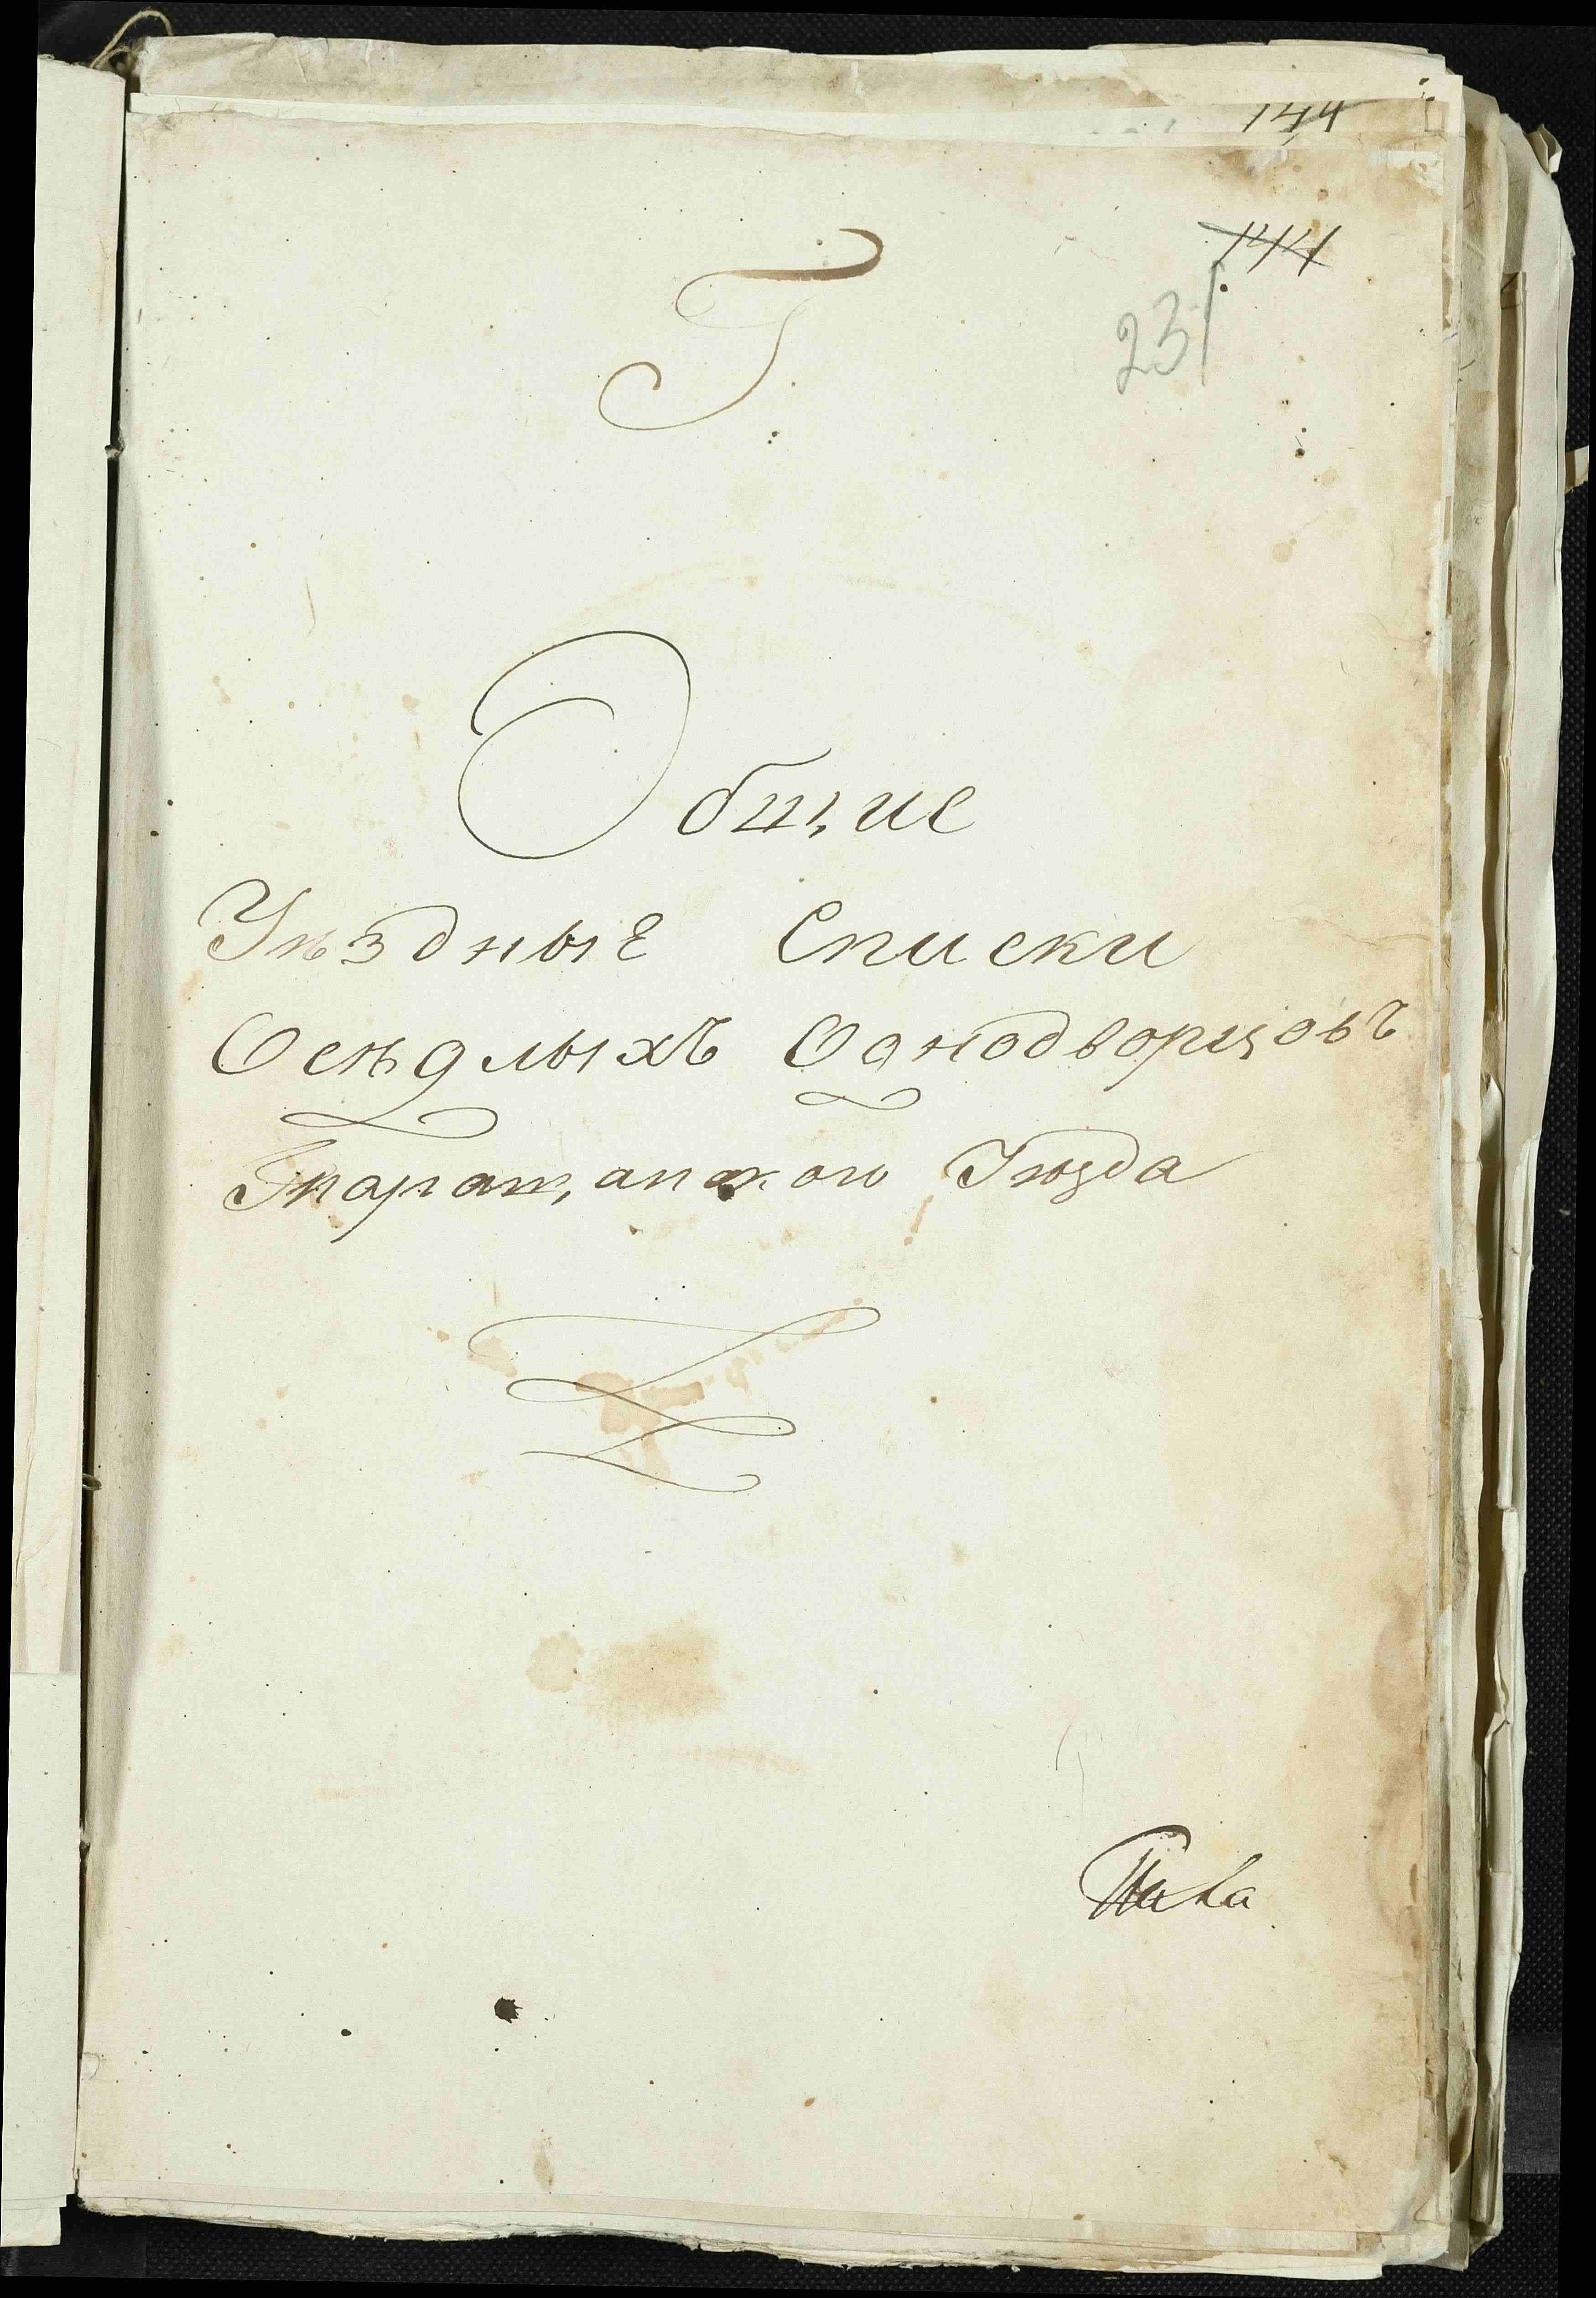 144
144
231
Г
Общие
Уѣздные Списки
Осѣдлыхъ Однодворцовъ
Уѣзда